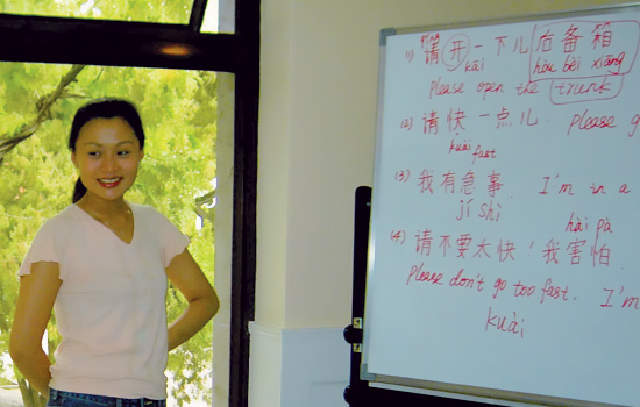 1) 请开一下儿后备箱
kāi hòu bèi xiāng
please open the trunk
(2) 请快一点儿. please g
kuài fast
(3) 我有急事. I'm in a
jí shì
hài pà
(4) 请不要太快，我害怕.
please don't go too fast. I'm
kuài